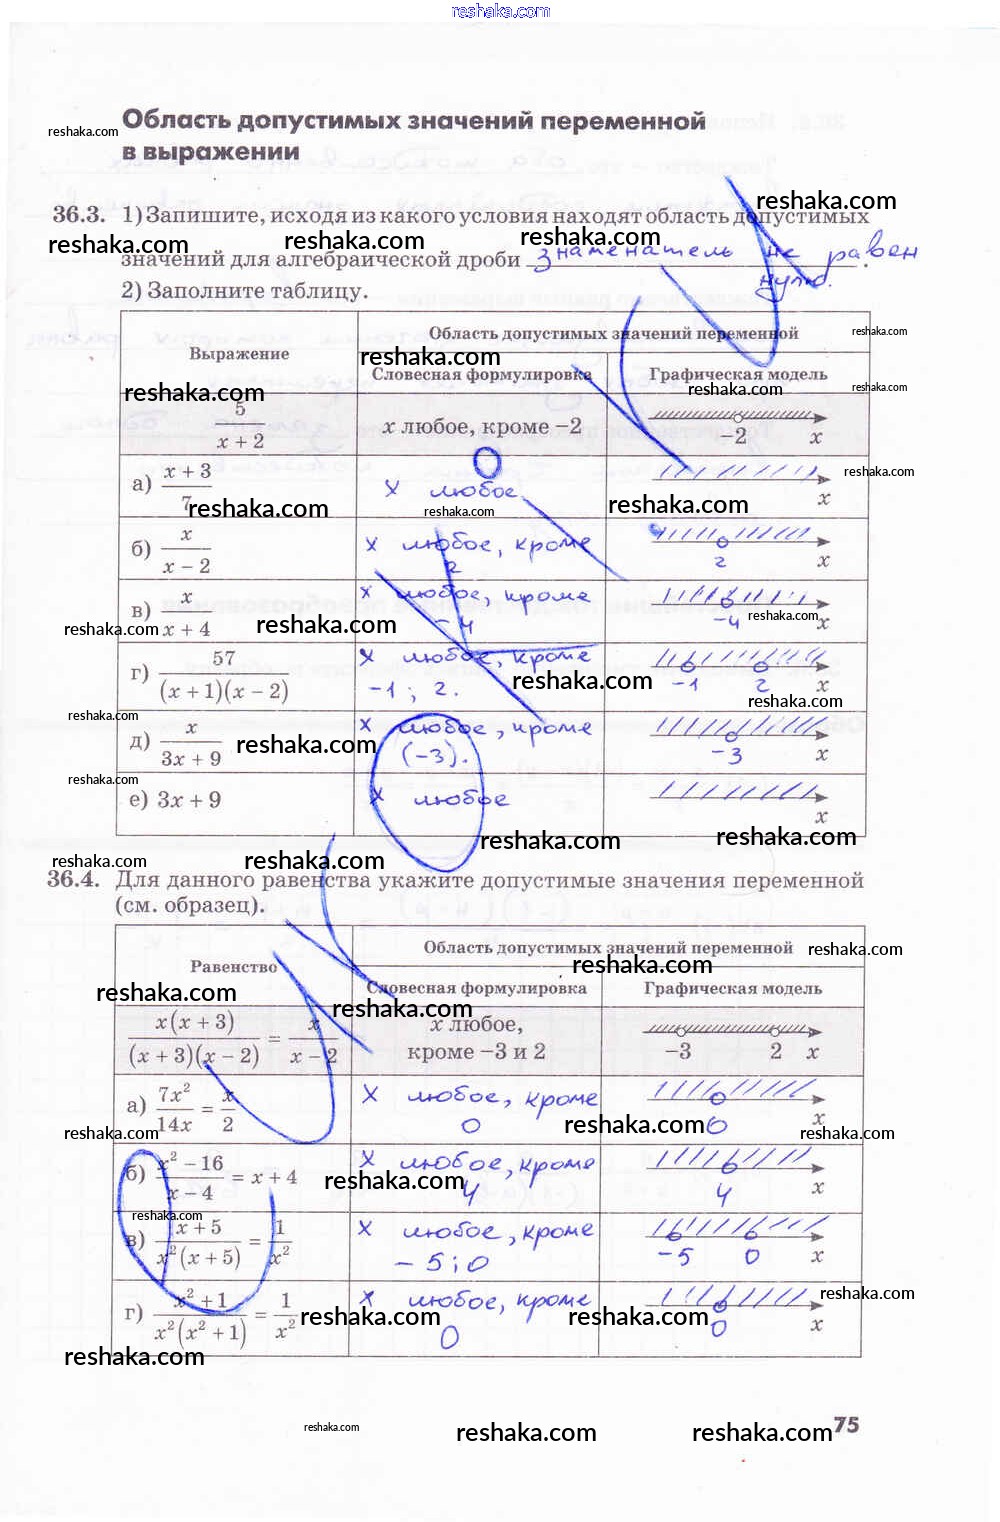 reshaka.com
Область допустимых значений переменной
в выражении
36.3. 1) Запишите, исходя из какого условия находят область допустимых
значений для алгебраической дроби знаменатель не равен
нулю.
2) Заполните таблицу.
Выражение
Область допустимых значений переменной
Словесная формулировка
Графическая модель
5/(x + 2)
x любое, кроме −2
−2 x
а) (x + 3)/7
x любое
x
б) x/(x − 2)
x любое, кроме
2
2 x
в) x/(x + 4)
x любое, кроме
−4
−4 x
г) 57/((x + 1)(x − 2))
x любое, кроме
−1; 2.
−1 2 x
д) x/(3x + 9)
x любое, кроме
(−3).
−3 x
е) 3x + 9
x любое
x
36.4. Для данного равенства укажите допустимые значения переменной
(см. образец).
Равенство
Область допустимых значений переменной
Словесная формулировка
Графическая модель
x(x + 3)/((x + 3)(x − 2)) = x/(x − 2)
x любое,
кроме −3 и 2
−3 2 x
а) 7x²/14x = x/2
x любое, кроме
0
0 x
б) (x² − 16)/(x − 4) = x + 4
x любое, кроме
4
4 x
в) (x + 5)/(x²(x + 5)) = 1/x²
x любое, кроме
−5; 0
−5 0 x
г) (x² + 1)/(x²(x² + 1)) = 1/x²
x любое, кроме
0
0 x
75